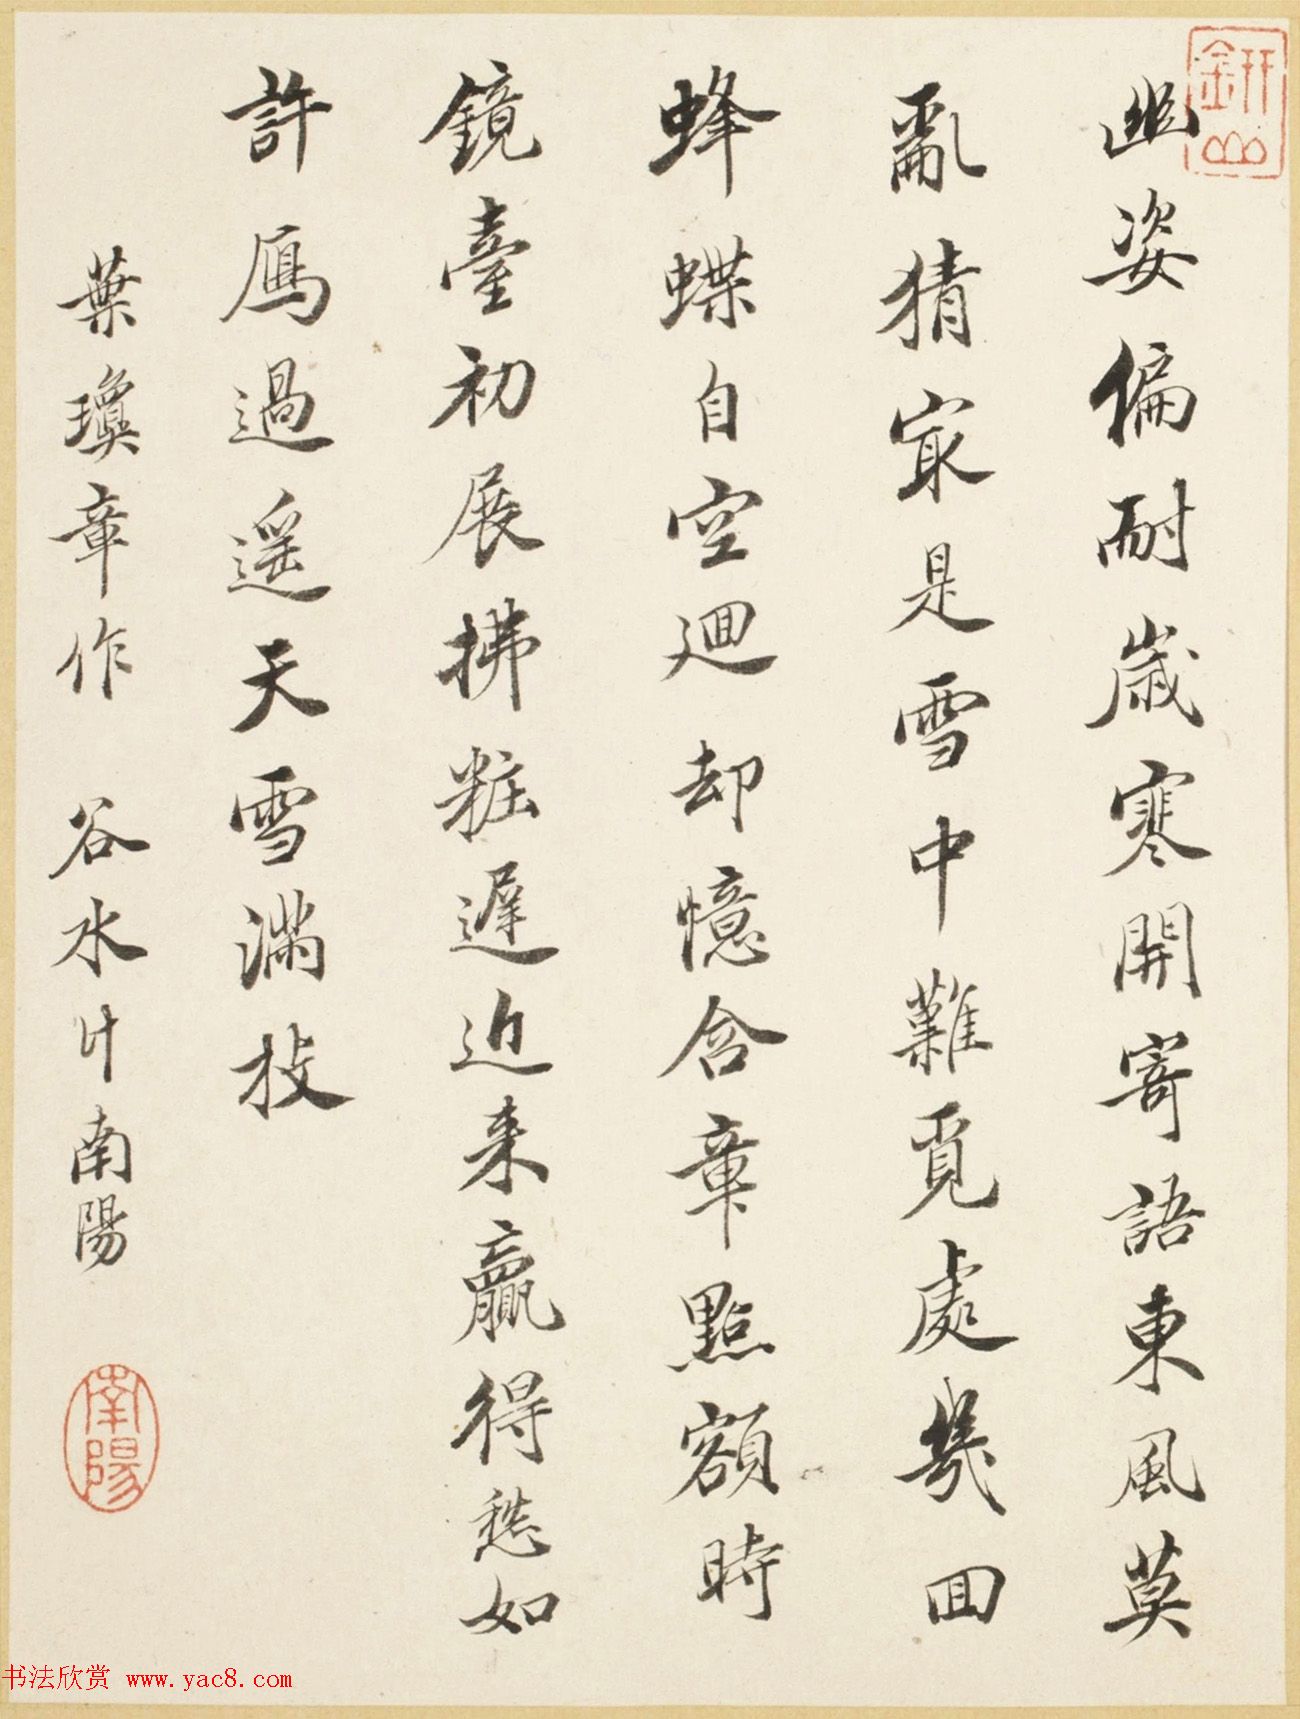 幽姿偏耐歲寒開寄語東風莫
亂猜寂是雪中難覓處幾回
蜂蝶自空迴却憶含章點額時
鏡臺初展拂粧遲近來贏得愁如
許鴈過遥天雪滿枝
葉瓊章作 谷水叶南陽
南陽
研山
书法欣赏 www.yac8.com